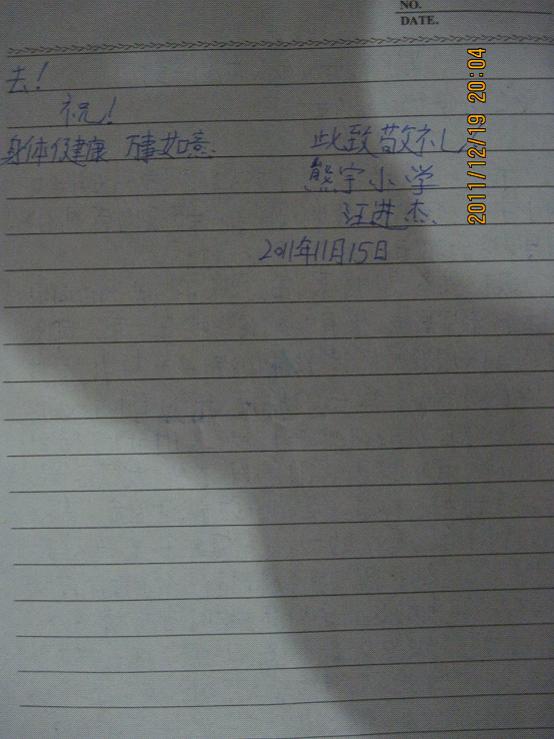 NO.
DATE.
去!
祝!
身体健康 万事如意.
此致敬礼
熊宇小学
汪进杰.
2011年11月15日
2011/12/19 20:04